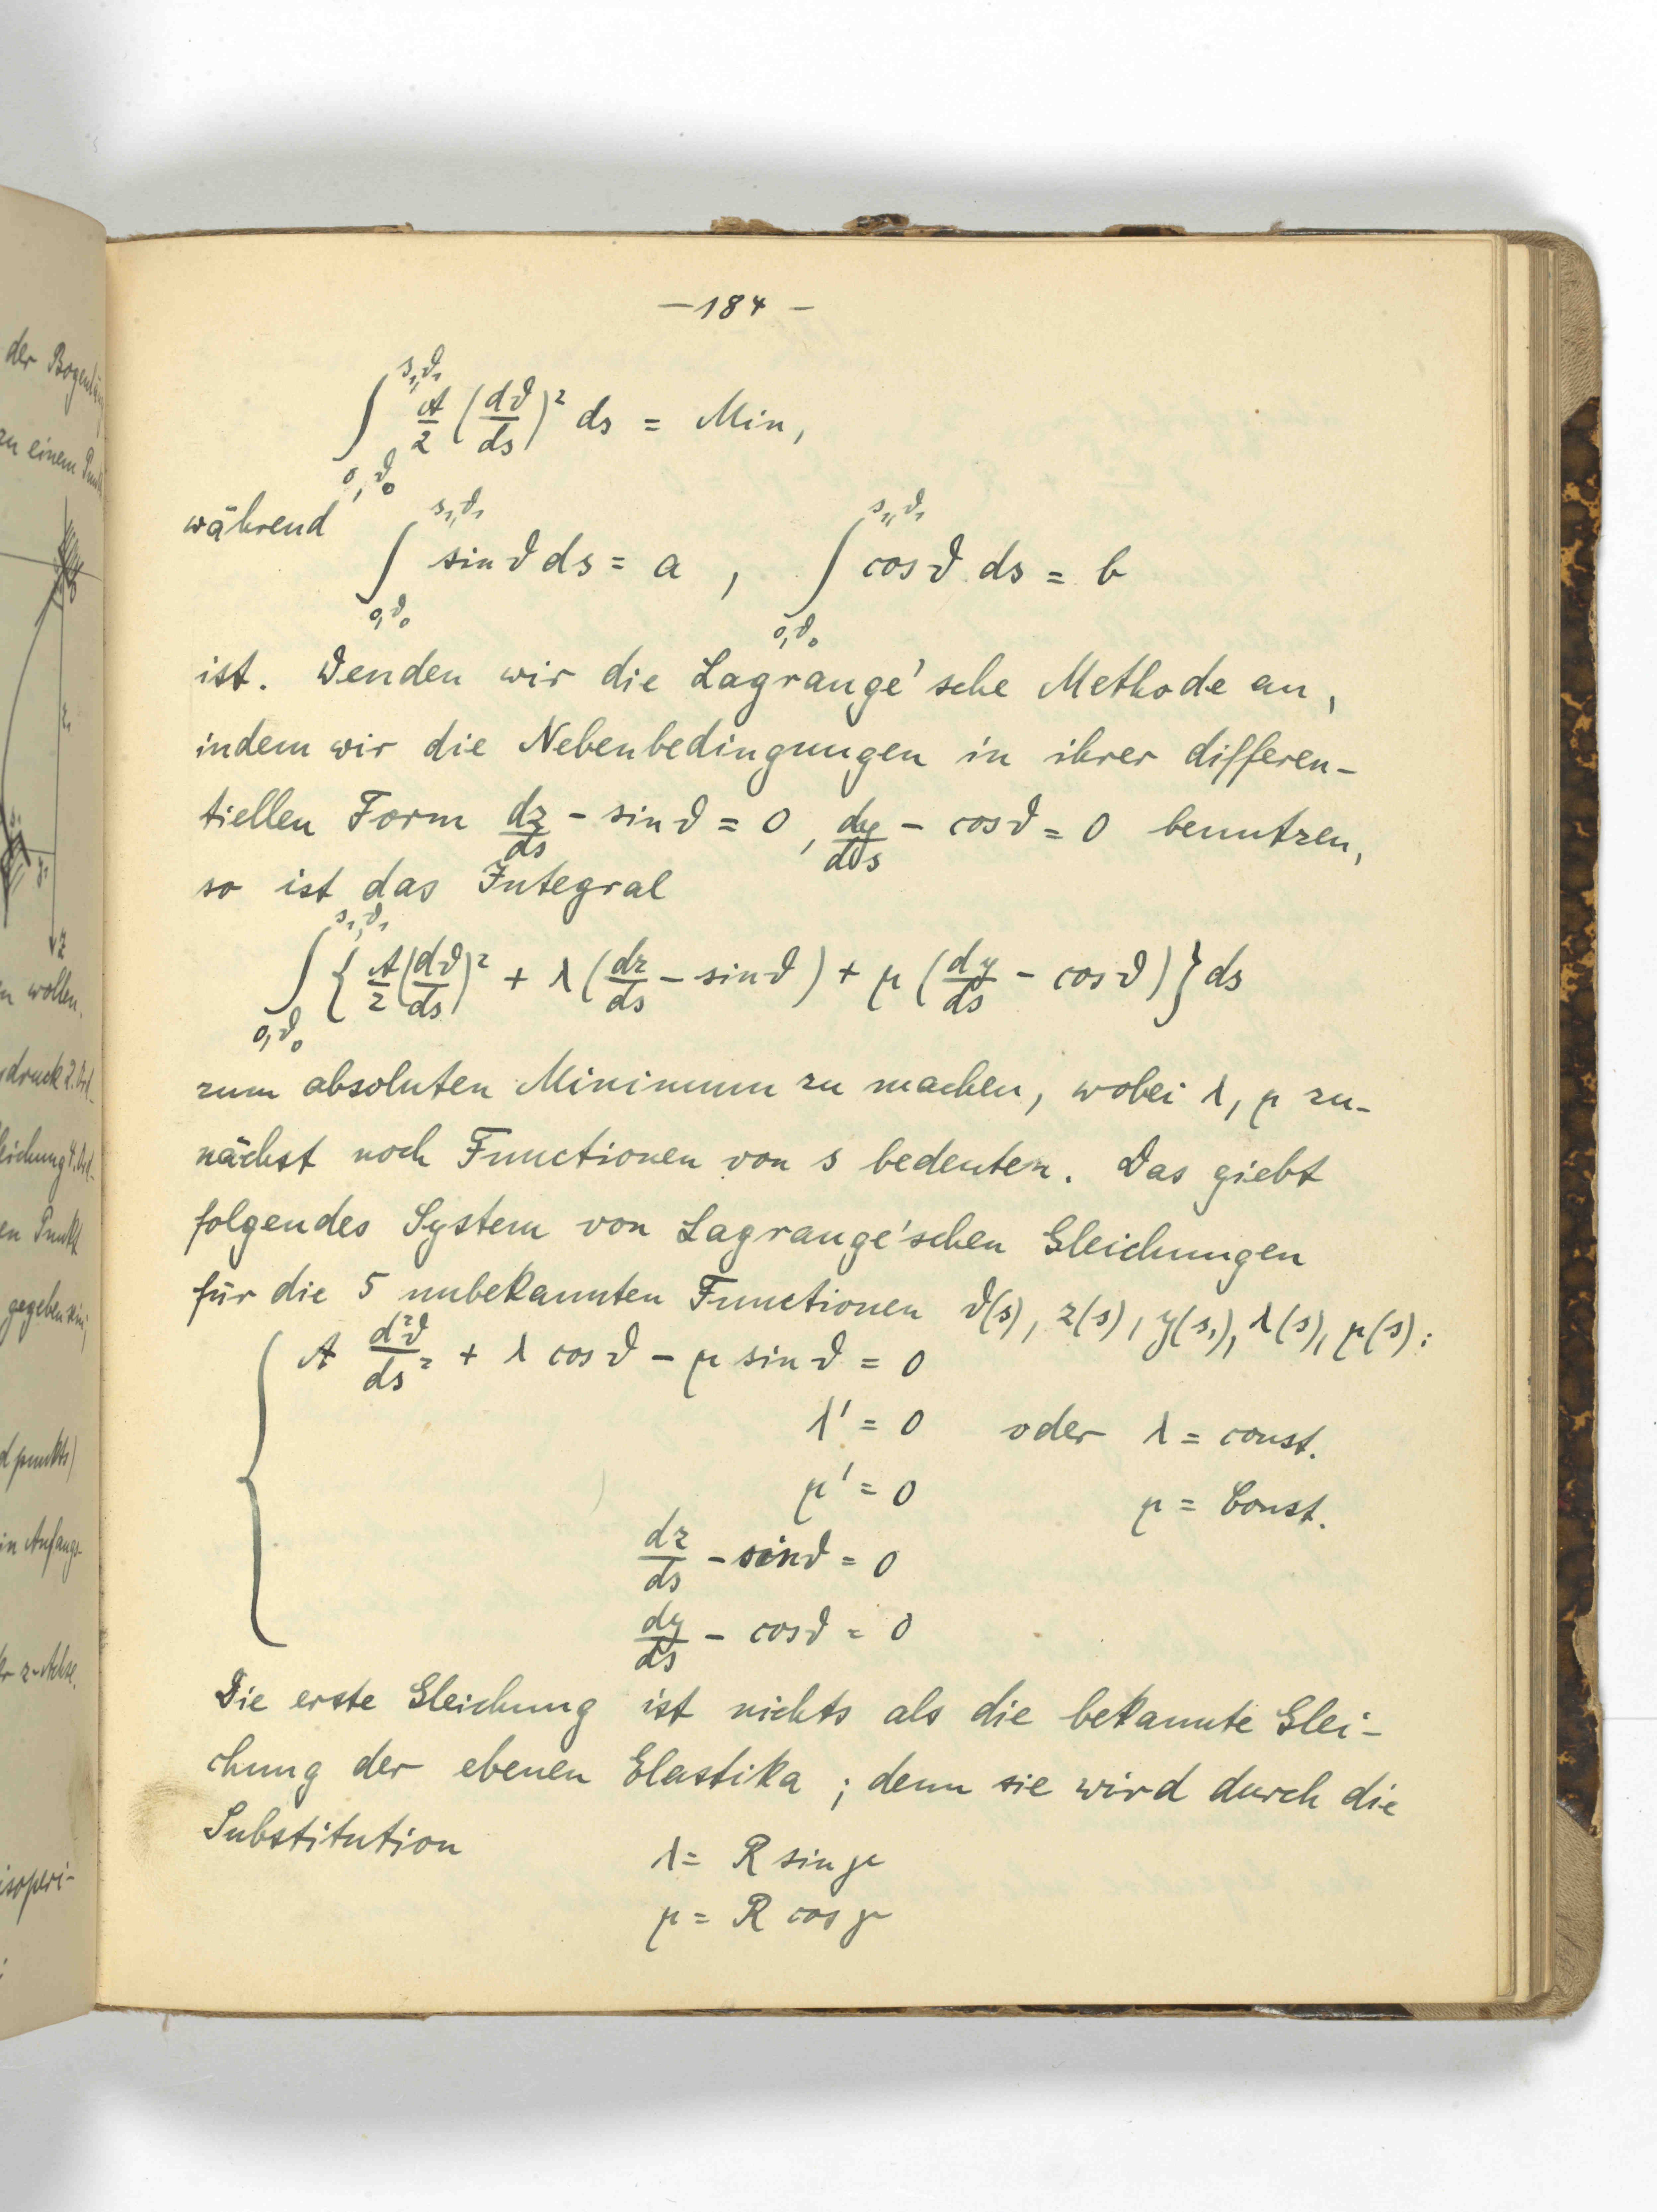 der Bogen
zu einem
z
n wollen.
druck 2. Ord-
leichung 4. Ord-
en Punkt
gegeben sein;
d punkts)
in Anfangs-
er z-Achse.
isoperi-
— 184 —
∫_{0,ϑ₀}^{s₁,ϑ₁} A/2 (dϑ/ds)² ds = Min,
während
∫_{0,ϑ₀}^{s₁,ϑ₁} sin ϑ ds = a , ∫_{0,ϑ₀}^{s₁,ϑ₁} cos ϑ ds = b
ist. Wenden wir die Lagrange'sche Methode an,
indem wir die Nebenbedingungen in ihrer differen-
tiellen Form dz/ds - sin ϑ = 0, dy/ds - cos ϑ = 0 benutzen,
so ist das Integral
∫_{0,ϑ₀}^{s₁,ϑ₁} { A/2 (dϑ/ds)² + λ (dz/ds - sin ϑ) + μ (dy/ds - cos ϑ) } ds
zum absoluten Minimum zu machen, wobei λ, μ zu-
nächst noch Functionen von s bedeuten. Das giebt
folgendes System von Lagrange'schen Gleichungen
für die 5 unbekannten Functionen ϑ(s), z(s), y(s,), λ(s), μ(s):
A d²ϑ/ds² + λ cos ϑ - μ sin ϑ = 0
λ' = 0 oder λ = const.
μ' = 0 μ = Const.
dz/ds - sin ϑ = 0
dy/ds - cos ϑ = 0
Die erste Gleichung ist nichts als die bekannte Glei-
chung der ebenen Elastika ; denn sie wird durch die
Substitution
λ = R sin γ
μ = R cos γ